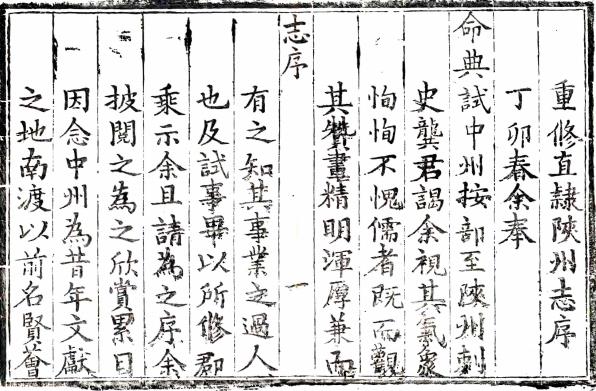 重修直隸陝州志序
丁卯春余奉
命典試中州按部至陝州刺
史龔君謁余視其氣象
恂恂不愧儒者既而觀
其贊畫精明渾厚兼而
志序
一
有之知其事業之過人
也及試事畢以所修郡
乘示余且請為之序余
披閱之為之欣賞累日
因念中州為昔年文獻
之地南渡以前名賢薈